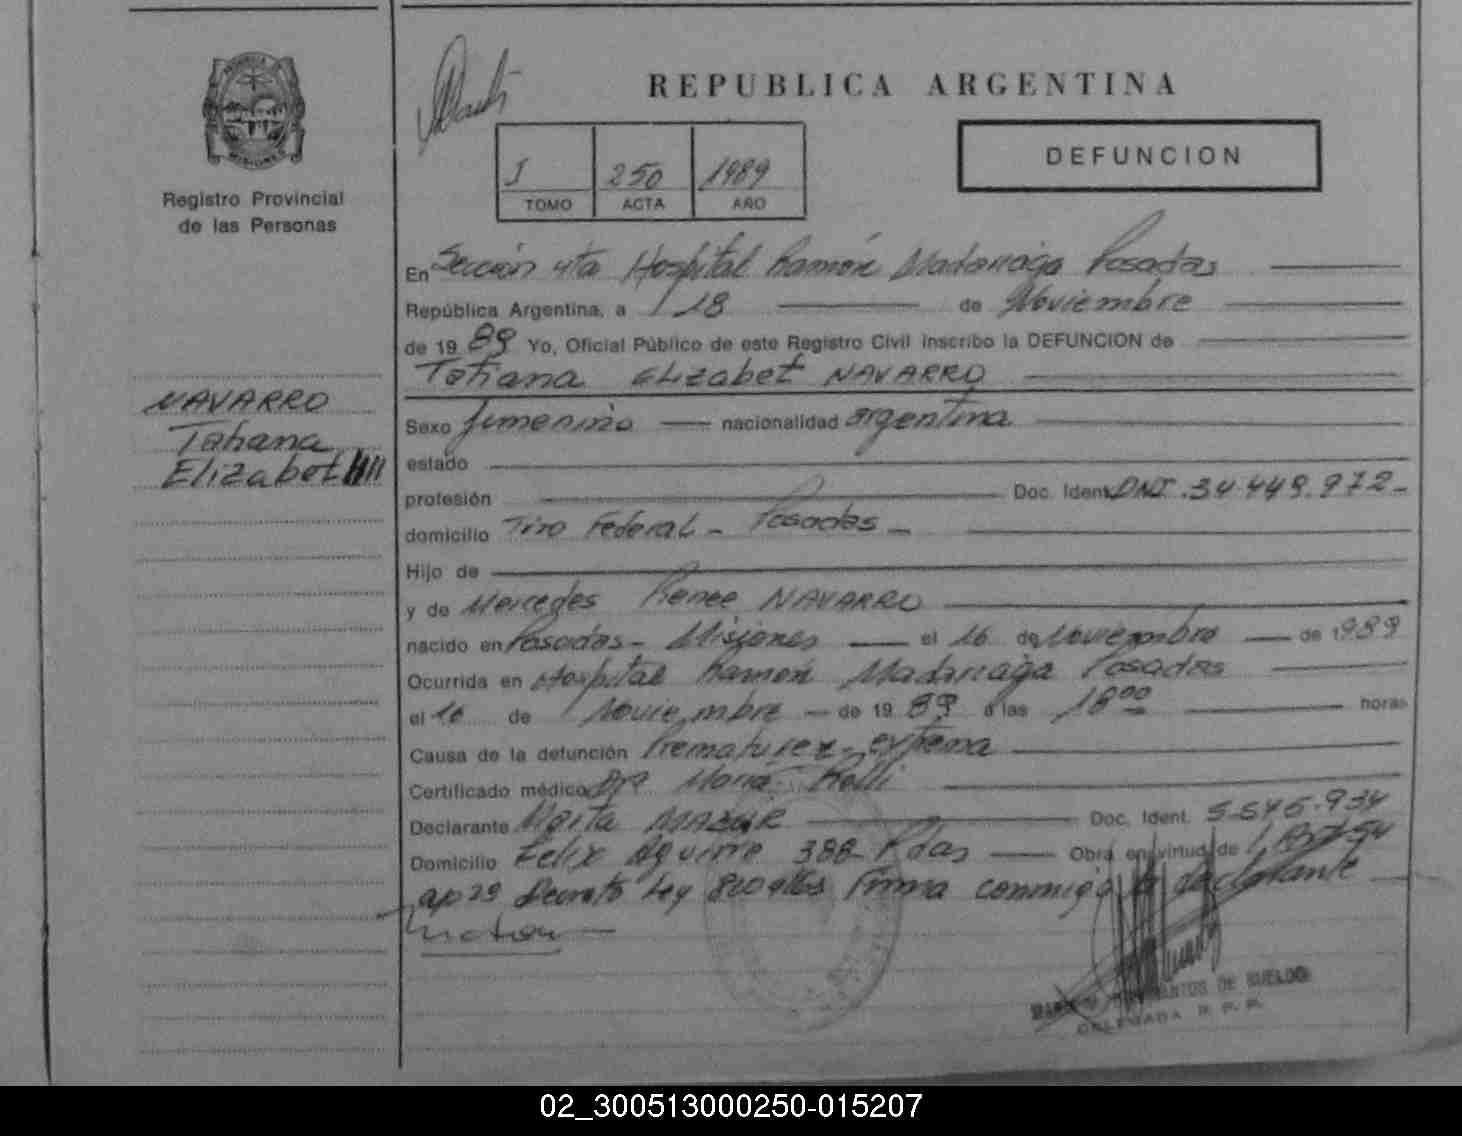 REPUBLICA ARGENTINA
PROVINCIA
MISIONES
Registro Provincial
de las Personas
I 250 1989
TOMO ACTA AÑO
DEFUNCION
En Sección 4ta Hospital Ramón Madariaga Posadas
República Argentina, a 18 de Noviembre
de 1989 Yo, Oficial Público de este Registro Civil inscribo la DEFUNCION de
Tatiana Elizabet NAVARRO
NAVARRO
Tatiana
Elizabet
Sexo femenino nacionalidad argentina
estado
profesión Doc. Ident. DNI. 34.449.972-
domicilio Tiro Federal - Posadas -
Hijo de
y de Mercedes Renee NAVARRO
nacido en Posadas - Misiones el 16 de Noviembre de 1989
Ocurrida en Hospital Ramón Madariaga Posadas
el 16 de Noviembre de 1989 a las 18ºº horas
Causa de la defunción Prematurez - extrema
Certificado médico Dra Maria
Declarante Marta MAZUR Doc. Ident. 5.575.934
Domicilio Felix Aguirre 388 Pdas Obra en virtud de
ap 29 Decreto Ley firma conmigo declarante
DE SUELDO
DELEGADA R. P. P.
02_300513000250-015207